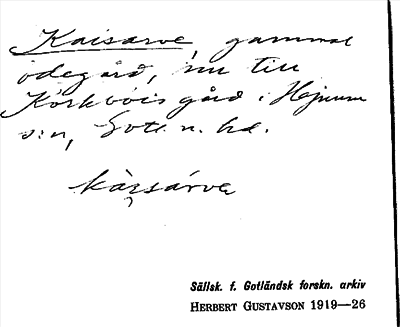 Kaisarve, gammal
ödegård, nu till
gård i Hejnum
s:n, Gotl. n. hd.
kàrsárve
Sällsk. f. Gotländsk forskn. arkiv
HERBERT GUSTAVSON 1919—26